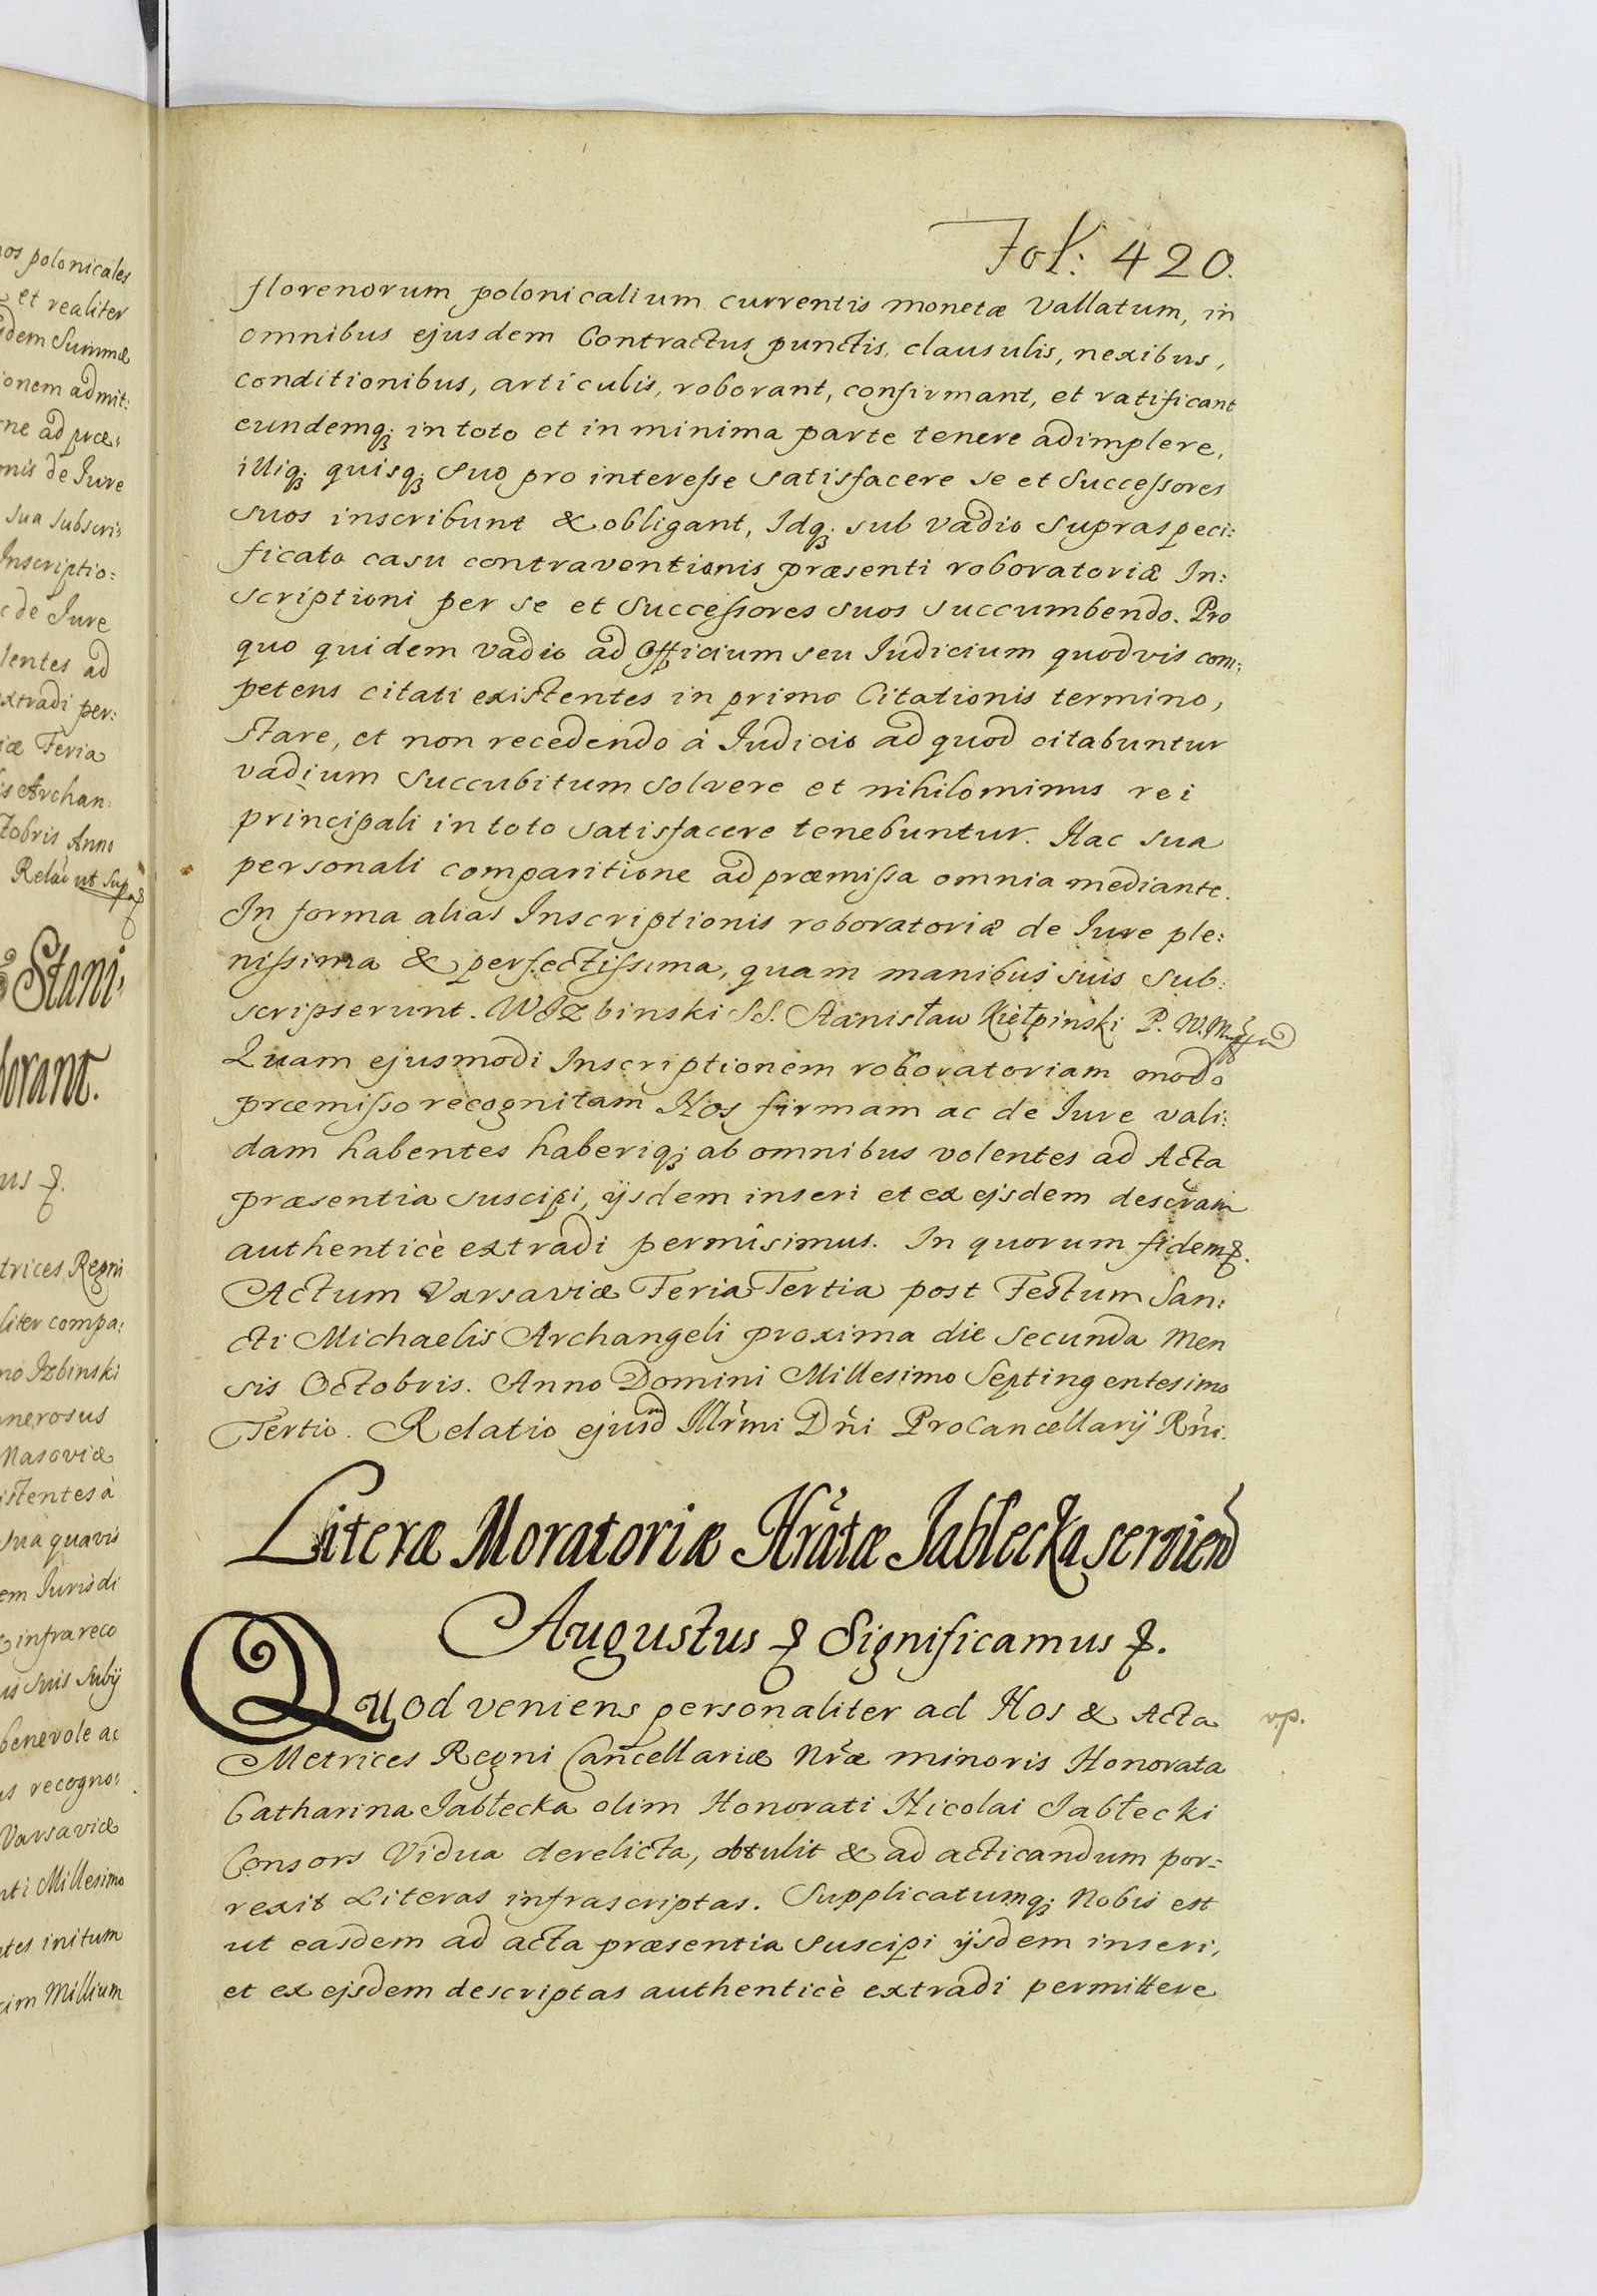 Fol: 420.
florenorum polonicalium currentis monetæ vallatum, in
omnibus ejusdem Contractus punctis, clausulis, nexibus,
conditionibus, articulis, roborant, confirmant, et ratificant
eundemq; in toto et in minima parte tenere adimplere,
illiq; quisq; suo pro interesse satisfacere se et Successores
suos inscribunt & obligant, Idq; sub vadio supraspeci:
ficato casu contraventionis præsenti roboratoriæ In:
scriptioni per se et Successores suos succumbendo. Pro
quo quidem vadio ad Officium seu Iudicium quodvis com:
petens citati existentes in primo Citationis termino,
stare, et non recedendo à Iudicio ad quod citabuntur
vadium succubitum solvere et nihilominus rei
principali in toto satisfacere tenebuntur. Hac sua
personali comparitione ad præmissa omnia mediante.
In forma alias Inscriptionis roboratoriæ de Iure ple:
nissima & perfectissima, quam manibus suis sub:
scripserunt. WJZbinski SS. Stanisław Kiełpinski P. W.
Quam ejusmodi Inscriptionem roboratoriam modo
præmisso recognitam Nos firmam ac de Iure vali:
dam habentes haberiq; ab omnibus volentes ad Acta
præsentia suscipi, ijsdem inseri et ex ejsdem
authenticè extradi permisimus. In quorum fidem &.
Actum Varsaviæ Feria Tertia post Festum San:
cti Michaelis Archangeli proxima die secunda Men
sis Octobris. Anno Domini Millesimo Septingentesimo
Tertio. Relatio ejusdm Illr̃mi Dñi ProCancellarij Rñi.
Literæ Moratoriæ Hr̃atæ Jabłecka serviend
Augustus & Significamus &.
Quod veniens personaliter ad Nos & Acta
v.p.
Metrices Regni Cancellariæ Nr̃æ minoris Honorata
Catharina Jabłecka olim Honorati Nicolai Jabłecki
Consors Vidua derelicta, obtulit & ad acticandum por:
rexit Literas infrascriptas. Supplicatumq; Nobis est
ut easdem ad acta præsentia suscipi ijsdem inseri,
et ex ejsdem descriptas authenticè extradi permittere